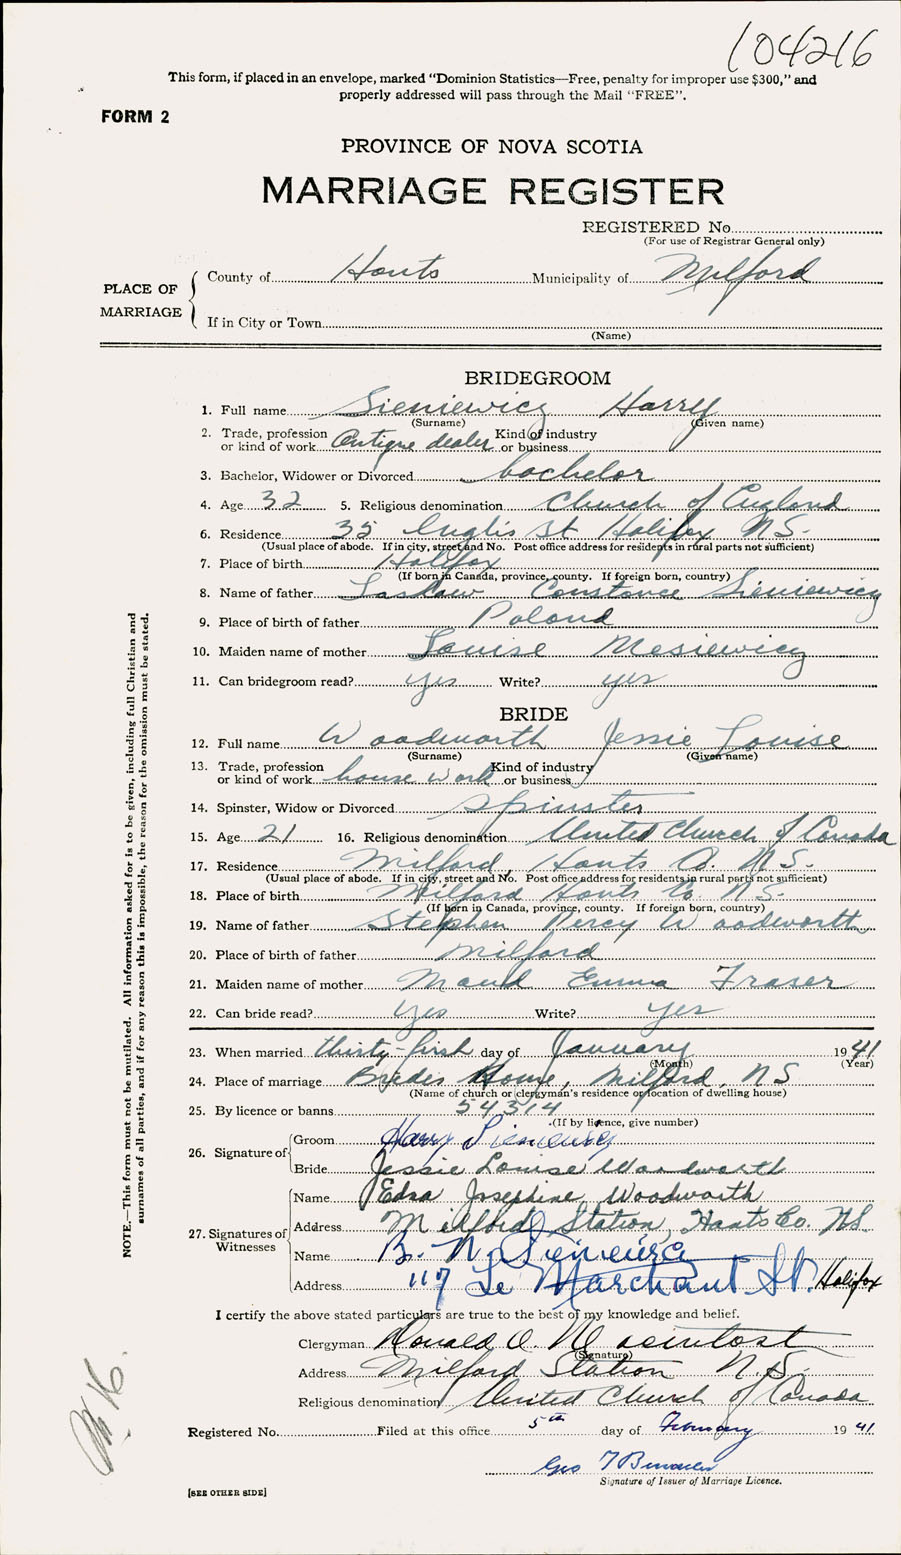 104216
This form, if placed in an envelope, marked "Dominion Statistics—Free, penalty for improper use $300," and
properly addressed will pass through the Mail "FREE".
FORM 2
PROVINCE OF NOVA SCOTIA
MARRIAGE REGISTER
REGISTERED No.
(For use of Registrar General only)
PLACE OF MARRIAGE
County of Hants Municipality of Milford
If in City or Town
(Name)
BRIDEGROOM
1. Full name Sieniewicz Harry
(Surname) (Given name)
2. Trade, profession or kind of work Antique dealer Kind of industry or business
3. Bachelor, Widower or Divorced bachelor
4. Age 32 5. Religious denomination Church of England
6. Residence 35 Inglis St Halifax N.S.
(Usual place of abode. If in city, street and No. Post office address for residents in rural parts not sufficient)
7. Place of birth Halifax
(If born in Canada, province, county. If foreign born, country)
8. Name of father Constance Sieniewicz
9. Place of birth of father Poland
10. Maiden name of mother Louise Mesiewicz
11. Can bridegroom read? yes Write? yes
BRIDE
12. Full name Woodworth Jessie Louise
(Surname) (Given name)
13. Trade, profession or kind of work house work Kind of industry or business
14. Spinster, Widow or Divorced spinster
15. Age 21 16. Religious denomination United Church of Canada
17. Residence Milford Hants Co. N.S.
(Usual place of abode. If in city, street and No. Post office address for residents in rural parts not sufficient)
18. Place of birth Milford Hants Co N.S.
(If born in Canada, province, county. If foreign born, country)
19. Name of father Stephen Percy Woodworth
20. Place of birth of father Milford
21. Maiden name of mother Maud Emma Fraser
22. Can bride read? yes Write? yes
23. When married thirty-first day of January 1941
(Month) (Year)
24. Place of marriage Brides Home, Milford, N.S
(Name of church or clergyman's residence or location of dwelling house)
25. By licence or banns 54314
(If by licence, give number)
26. Signature of
Groom Harry
Bride Jessie Louise Woodworth
27. Signatures of Witnesses
Name Edna Josephine Woodworth
Address Milford Station, Hants Co. N.S.
Name B. N.
Address 117 Le Marchant St. Halifax
I certify the above stated particulars are true to the best of my knowledge and belief.
Clergyman Donald O. Macintosh
(Signature)
Address Milford Station N.S.
Religious denomination United Church of Canada
Registered No. Filed at this office 5th day of February 1941
Geo T
Signature of Issuer of Marriage Licence.
[SEE OTHER SIDE]
NOTE.—This form must not be mutilated. All information asked for is to be given, including full Christian and
surnames of all parties, and if for any reason this is impossible, the reason for the omission must be stated.